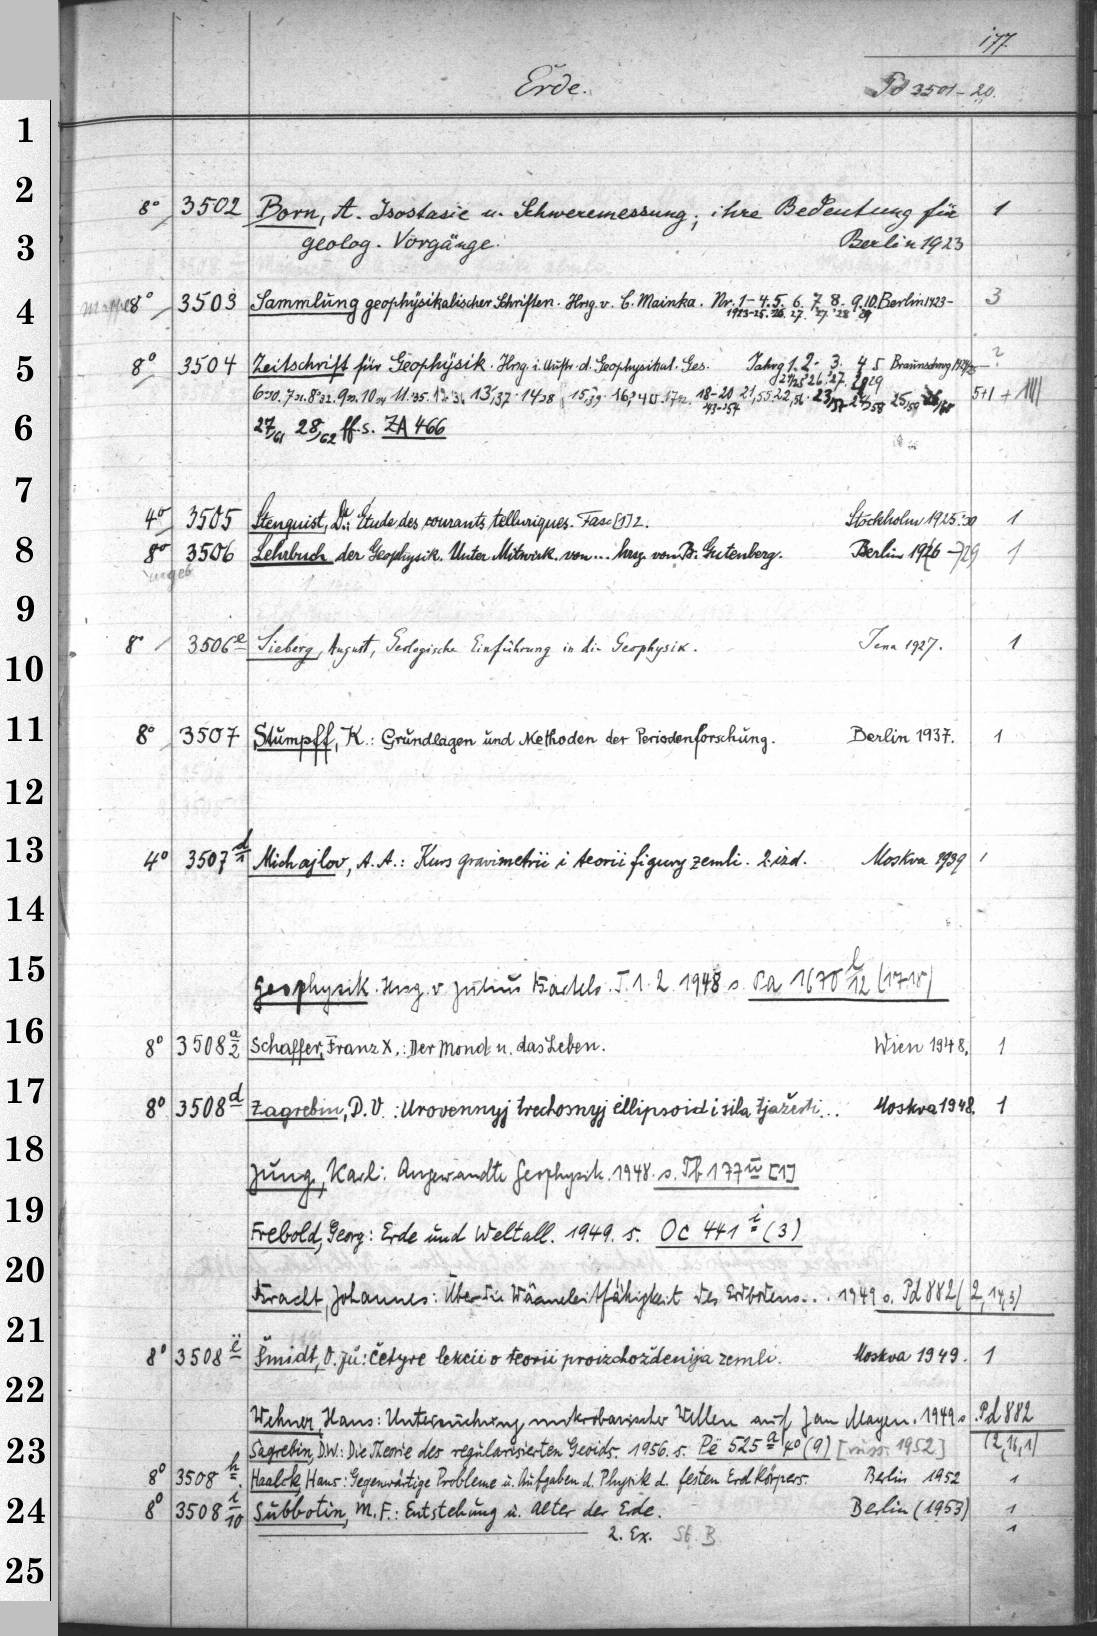 177.
Erde. Pd 3501-20.
1
2
8° 3502 Born, A. Isostasie u. Schweremessung; ihre Bedeutung für 1
3
geolog. Vorgänge. Berlin 1923
4
8° 3503 Sammlung geophysikalischer Schriften. Hrsg. v. C. Mainka. Nr. 1-4. 5. 6. 7. 8. 9. 10. Berlin 1923- 3
1923-25. 26. 27. 27. 28 29
5
8° 3504 Zeitschrift für Geophysik. Hrsg. i. Auftr. d. Geophysikal. Ges. Jahrg. 1. 2. 3. 4 5 Braunschwg 1924/25- ?
24/25 26. 27. 28 29
6 30. 7 31. 8 32. 9 33. 10 34 11. 35. 12 36 13,37. 14 38 15,39. 16,40 18-20 21,55 22,56 23/57 24/58 25/59 26/60 5+1 +
43-54
6
27/61 28/62 ff. s. ZA 466
7
4° 3505 Stenquist, D.: Étude des courants telluriques. Fasc. [1] 2. Stockholm 1925. 30 1
8
8° 3506 Lehrbuch der Geophysik. Unter Mitwirk. von... hrsg. von B. Gutenberg. Berlin 19(26-)29 1
ungeb
9
8° 3506 a Sieberg, August, Geologische Einführung in die Geophysik. Jena 1927. 1
10
11
8° 3507 Stumpff, K.: Grundlagen und Methoden der Periodenforschung. Berlin 1937. 1
12
13
4° 3507 d/1 Michajlov, A. A.: Kurs gravimetrii i teorii figury zemli. 2. izd. Moskva 1939 1
14
15
Geophysik. Hrsg. v. Julius Bartels. T. 1. 2. 1948 s. Pa 1670 l/12 (17.18)
16
8° 3508 a/2 Schaffer, Franz X.: Der Mond u. das Leben. Wien 1948. 1
17
8° 3508 d Zagrebin, D. V.: Urovennyj trechosnyj ellipsoid i sila tjažesti... Moskva 1948. 1
18
Jung, Karl: Angewandte Geophysik. 1948. s. Tb 177 w [1]
19
Frebold, Georg: Erde und Weltall. 1949. s. Oc 441 i (3)
20
Kracht, Johannes: Über die Wärmeleitfähigkeit des Erdbodens... 1949 s. Pd 882 (2,14,3)
21
8° 3508 ë Šmidt, O. Ju: Četyre lekcii o teorii proizchoždenija zemli. Moskva 1949. 1
22
Wehner, Hans: Untersuchung mikrobarischer Wellen auf Jan Mayen. 1949 s. Pd 882
23
(2,16,1)
Sagrebin, D.W.: Die Theorie des regularisierten Geoids. 1956. s. Pe 525 a 4° (9) [russ. 1952]
8° 3508 h Haalck, Hans: Gegenwärtige Probleme u. Aufgaben d. Physik d. festen Erdkörpers. Berlin 1952 1
24
8° 3508 i/10 Subbotin, M. F.: Entstehung u. Alter der Erde. Berlin (1953) 1
2. Ex. St. B 1
25